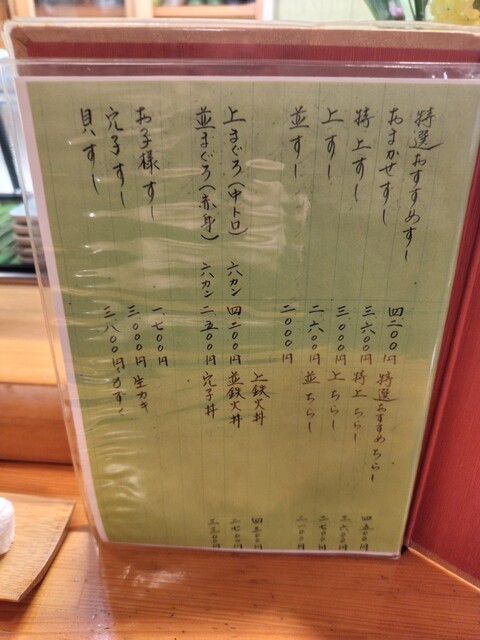 特選おすすめすし 四二〇〇円
おまかせすし 三六〇〇円
特上すし 三〇〇〇円
上すし 二六〇〇円
並すし 二〇〇〇円
上まぐろ(中トロ) 六カン 四二〇〇円
並まぐろ(赤身) 六カン 二五〇〇円
お子様すし 一七〇〇円
穴子すし 三〇〇〇円
貝すし 三八〇〇円
特選おすすめちらし 四五〇〇円
特上ちらし 三六〇〇円
上ちらし
並ちらし
上鉄火丼
並鉄火丼 二七〇〇円
穴子丼
生カキ
もずく